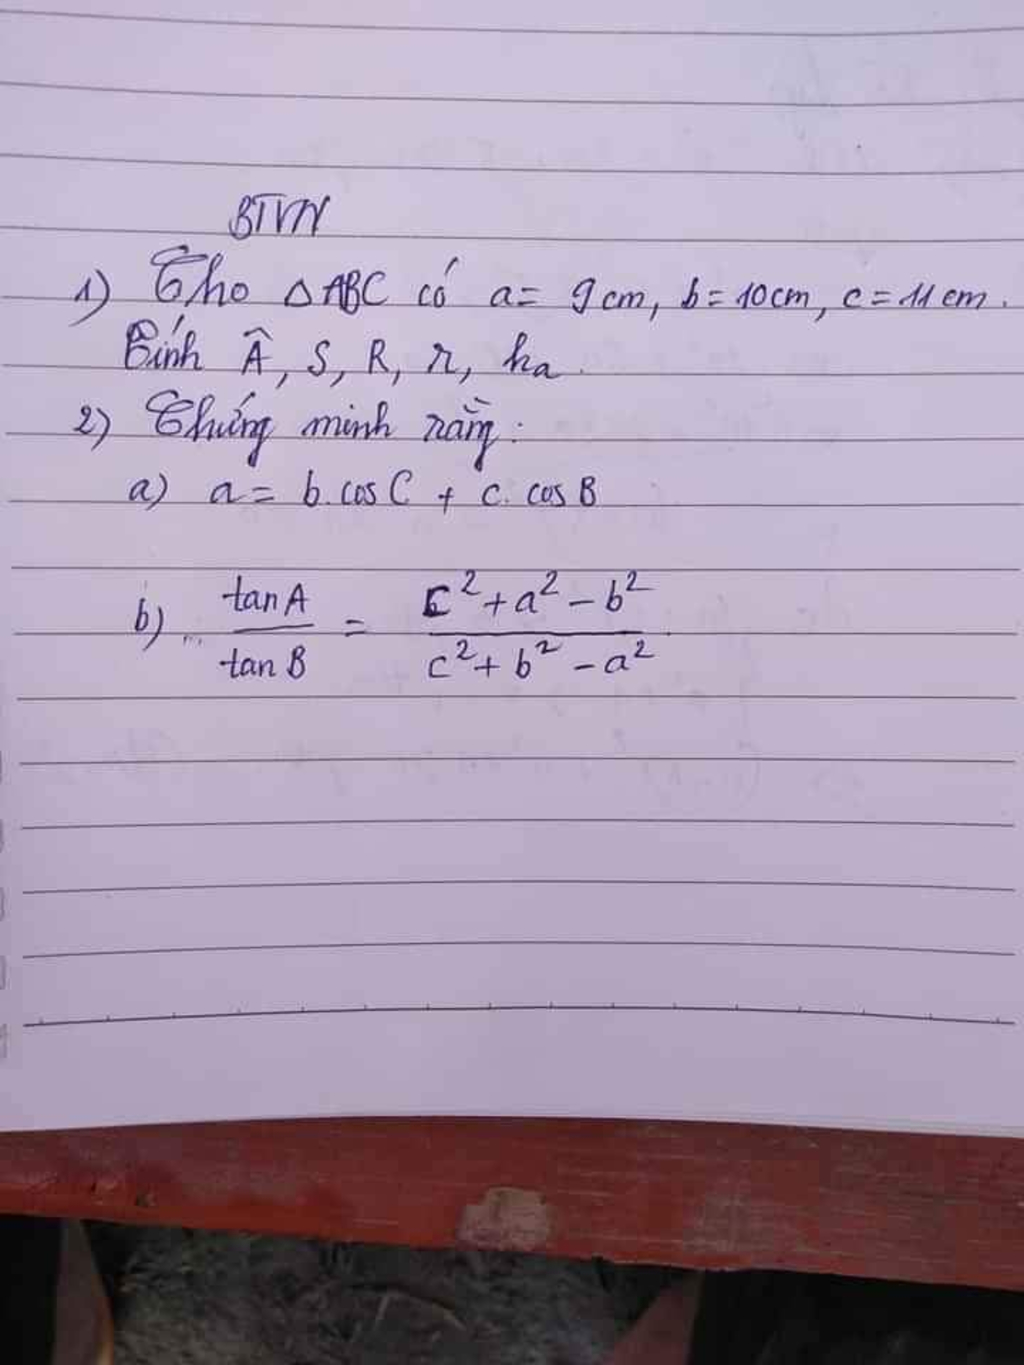 BTVN
1) Cho △ABC có a = 9cm, b = 10cm, c = 11cm.
Tính Â, S, R, r, ha.
2) Chứng minh rằng:
a) a = b.cosC + c.cosB
b) tanA/tanB = (c²+a²-b²)/(c²+b²-a²).